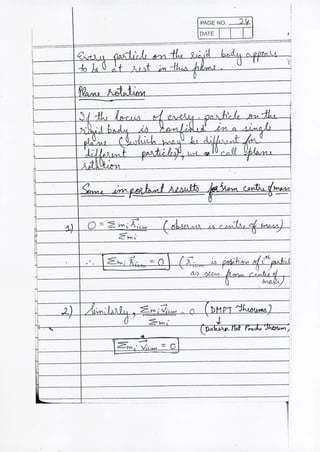 PAGE NO. 24
DATE
Every particle on the rigid body appears
to be at rest in this frame.
Plane rotation
If the locus of every particle on the
rigid body is confined in a single
plane (which may be different for
different particles), we call plane
rotation
Some important results from centre of mass
1) O = Σ mi r̄i,cm (observer is centre of mass)
Σmi
∴ Σmi r̄i,cm = 0 (r̄i,cm is position of ith particle
as seen from centre of
mass)
2) Similarly, Σmi v̄i,cm = 0 (DMPT Theorems)
Σmi
(Dekara Mat Theorem)
Σmi v̄i,cm = 0